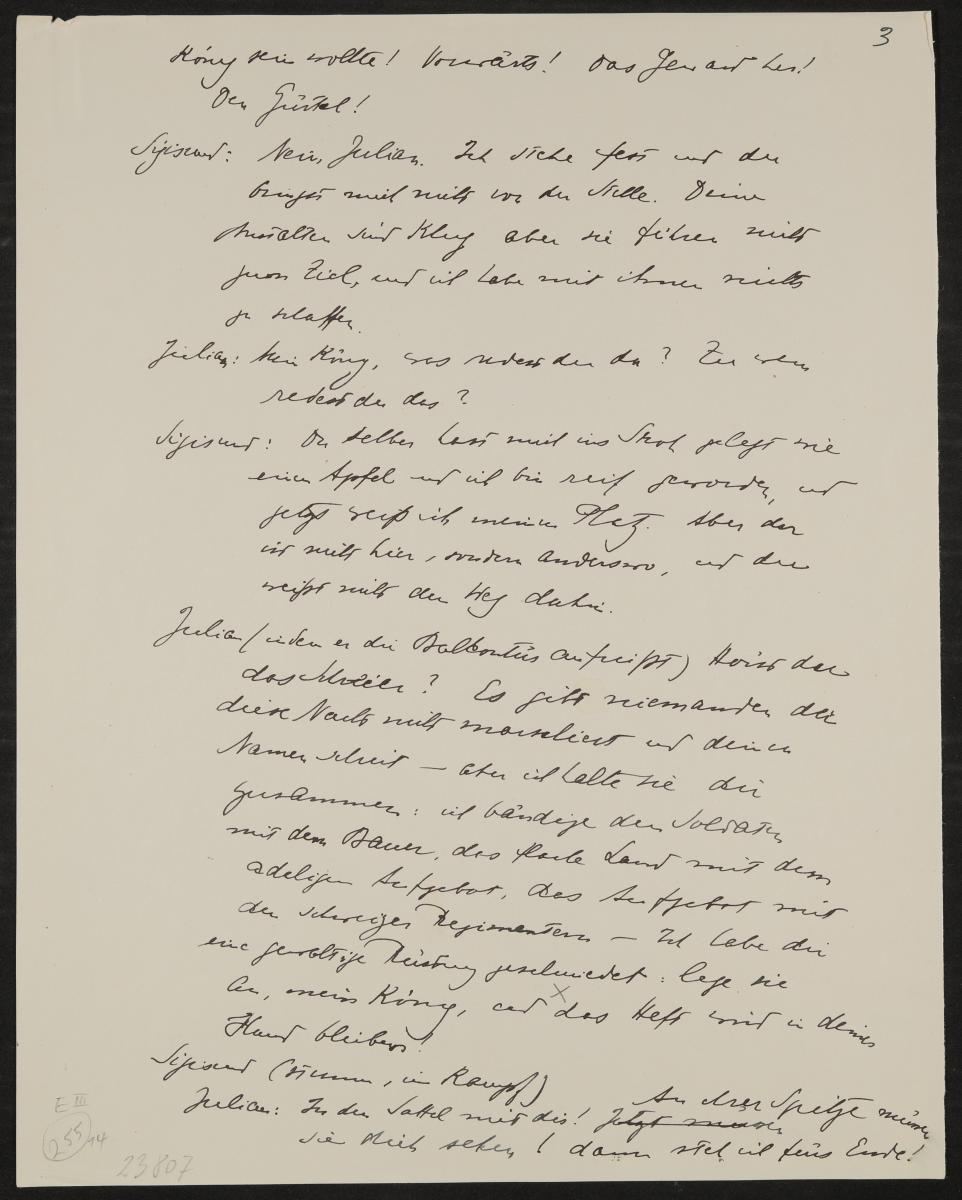 3
König sein wollte! Vorwärts! Das Gewand her!
Den Gürtel!
Sigismund: Nein, Julian. Ich stehe fest und du
bringst mich nicht von der Stelle. Deine
Anstalten sind klug aber sie führen nicht
zum Ziel, und ich habe mit ihnen nichts
zu schaffen.
Julian: Mein König, was redest du da? Zu wem
redest du das?
Sigismund: Du selber hast mich ins Stroh gelegt wie
einen Apfel und ich bin reif geworden, und
jetzt weiß ich meinen Platz. Aber der
ist nicht hier, sondern anderswo, und du
weißt nicht den Weg dahin.
Julian (indem er die Balkontür aufreißt) Hörst du
das Schreien? Es gibt niemanden der
diese Nacht nicht marschiert und deinen
Namen schreit — aber ich halte sie dir
zusammen: ich bändige den Soldaten
mit dem Bauer, das flache Land mit dem
adeligen Aufgebot, das Aufgebot mit
den schweizer Regimentern — Ich habe dir
eine gewaltige Rüstung geschmiedet: lege sie
an, mein König, und das Heft wird in deiner
Hand bleiben!
Sigismund (stumm, im Kampf)
An ihrer Spitze müssen
Julian: In den Sattel mit dir! Jetzt müssen
sie dich sehen! dann steh ich fürs Ende!
E III
255 14
23807